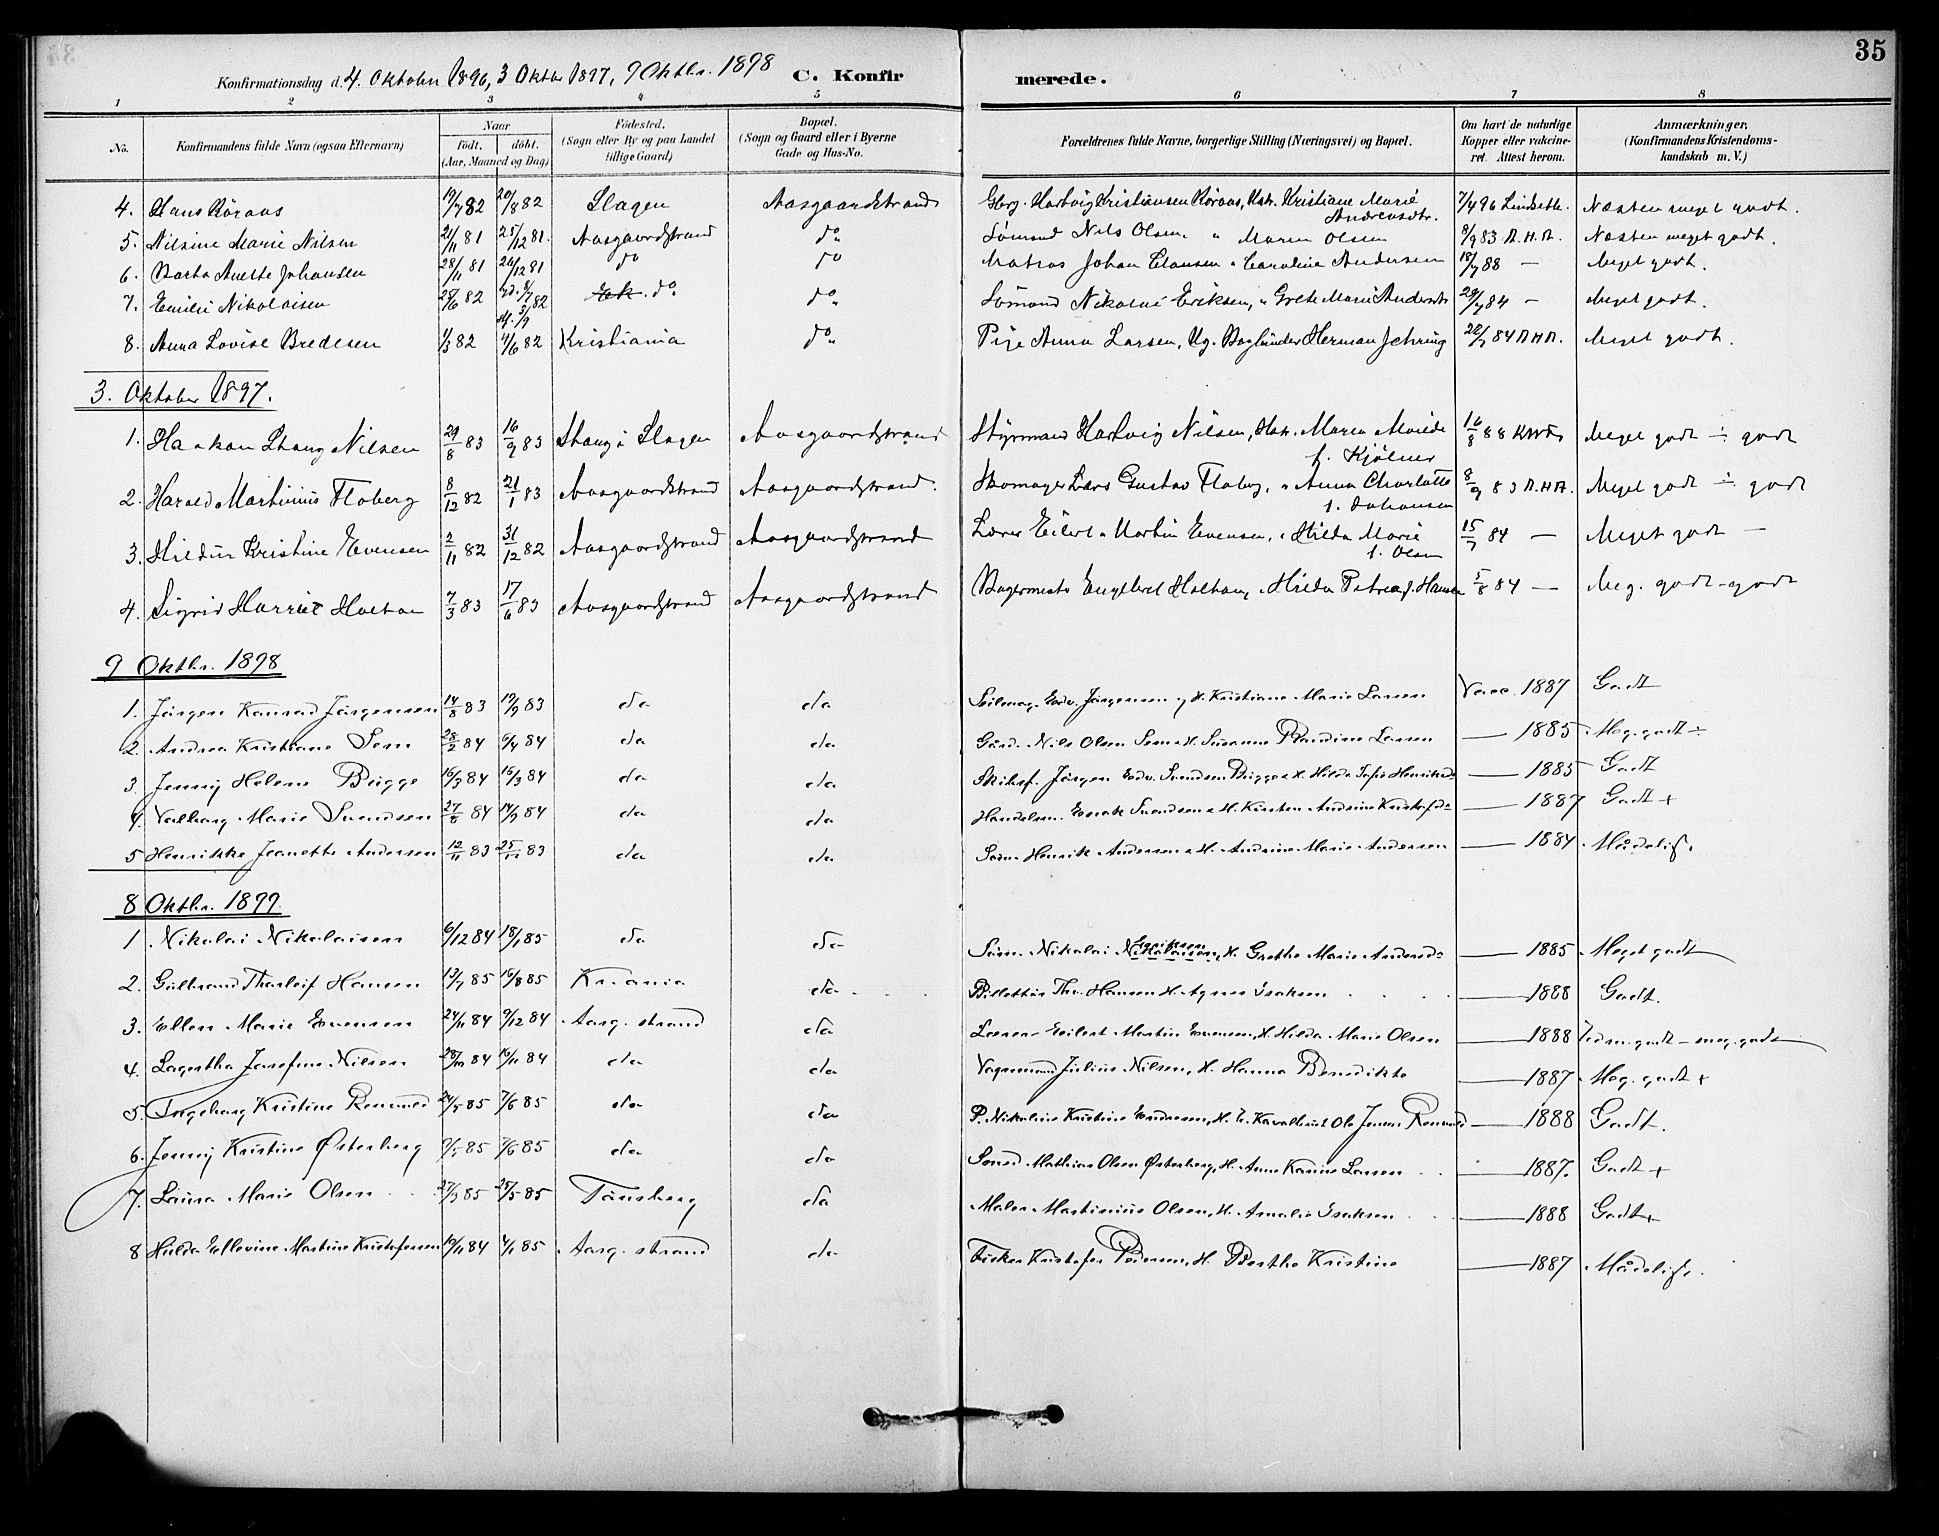 35
Konfirmationsdag d. 4. Oktober 1896, 3 Oktbr 1897, 9 Oktbr. 1898 C. Konfirmerede.
1 2 3 4 5 6 7 8
No. Konfirmandens fulde Navn (ogsaa Efternavn) Naar født. døbt. (Aar, Maaned og Dag) Fødested. (Sogn eller By og paa Landet tillige Gaard) Bopæl. (Sogn og Gaard eller i Byerne Gade og Hus-No. Forældrenes fulde Navne, borgerlige Stilling (Næringsvei) og Bopæl. Om havt de naturlige Kopper eller vakcineret. Attest herom. Anmærkninger. (Konfirmandens Kristendomskundskab m. V.)
4. Hans Röraas 19/7 82 20/8 82 Slagen Aasgaardstrand Hartvig Kristiansen Röraas, Kristiane Marie Andreasdtr. 7/4 96 Næsten meget godt.
5. Nilsine Marie Nilsen 21/11 81 25/12 81. Aasgaardstrand do Sömand Nils Olsen. " Maren Olsen 8/9 83 A.H.A. Næsten meget godt.
6. Berta Anette Johansen 28/11 81 26/12 81 do do Matros Johan Clausen " Caroline Andersen 18/7 88 — Meget godt.
7. Emilie Nikolaisen 25/6 82 8/7 82 3/9 do. do Sömand Nikolai Eriksen, " Grete Marie Andersdtr 29/7 84 — Meget godt.
8. Anna Lovise Bredesen 1/3 82 4/6 82 Kristiania do Pige Anna Larsen, Ug. Bogbinder Herman Jehring 22/7 84 A.H.A. Meget godt.
3. Oktober 1897.
1. Haakon Stang Nilsen 29/8 83 16/9 83 Stang i Slagen Aasgaardstrand Styrmand Hartvig Nilsen, Hstr. Maren f. Kjölner 16/8 88 Meget godt ÷ godt
2. Harald Martinius Floberg 8/12 82 21/1 83 Aasgaardstrand Aasgaardstrand. Skomager Lars Gustav Floberg, " Anna Charlotte f. Johansen 8/9 83 A.H.A. Meget godt ÷ godt
3. Hildur Kristine Evensen 2/11 82 31/12 82 Aasgaardstrand Aasgaardstrand Lærer Eilert Martin Evensen, " Hilda Marie f. Olsen 15/7 84 — Meget godt —
4. Sigrid Harriet Holtan 7/3 83 17/6 83 Aasgaardstrand Aasgaardstrand Bagermester Engelbret Holtan, " Hilda Petrea f. Hansen 5/8 84 — Meg. godt - godt
9 Oktbr. 1898
1. Jörgen Konrad Jörgensen 14/8 83 19/9 83 do do Seilmag. Edv. Jörgensen og H. Kristiane Marie Larsen Vacc. 1887 Godt
2. Andrea Kristiane Sem 28/2 84 6/4 84 do do Gård. Nils Olsen Sem & H. Susanne Randine Larsen — 1885 Meg. godt ÷
3. Jenny Helene Bugge 16/3 84 15/3 84 do do Skibsf. Jörgen Edv. Svendsen Bugge & H. Hilda Sofie Henriksd. — 1885 Godt
4. Valborg Marie Svendsen 27/8 84 14/9 84 do do Handelsm. Svendsen & H. Kirsten Andrine Kristofsd. — 1887 Godt +
5 Henrikke Jeanette Andersen 12/11 83 25/12 83 do do Söm. Henrik Andersen & H. Andrine Marie Andersen — 1884 Mådelig.
8 Oktbr. 1899.
1 Nikolai Nikolaisen 6/12 84 18/1 85 do do Söm. Nikolai Nikolaisen Eriksen, H. Grethe Marie Andersd. — 1885 Meget godt
2. Gulbrand Thorleif Hansen 13/7 85 16/8 85 Kr.ania do Billettör Thv. Hansen H. Agnes Isaksen — 1888 Godt.
3. Ellen Marie Evensen 24/11 84 9/12 84 Aasg. strand do Lærer Eilert Martin Evensen, H. Hilda Marie Olsen — 1888 godt - meg. godt
4. Lagertha Josefine Nilsen 28/10 84 16/11 84 do do Vognmand Julius Nilsen, H. Hanna Benedikte — 1887 Meg. godt +
5. Ingeborg Kristine Renmod 24/5 85 7/6 85 do do P. Nikoline Kristine Endresen, H. Kavallerist Ole Jensen Renmod — 1888 Godt.
6. Jenny Kristine Österberg 9/5 85 7/6 85 do do Sömd Mathias Olsen Österberg, H. Anne Karine Larsen — 1887. Godt +
7. Laura Marie Olsen 27/3 85 25/5 85 Tönsberg do Maler Martinius Olsen, H. Amalie Isaksen — 1888 Godt +
8 Hulda Ellevine Martine Kristofersen 19/11 84 4/1 85 Aasg. strand do Fisker Kristofer Pedersen, H. Berthe Kristine — 1887 Mådelig.